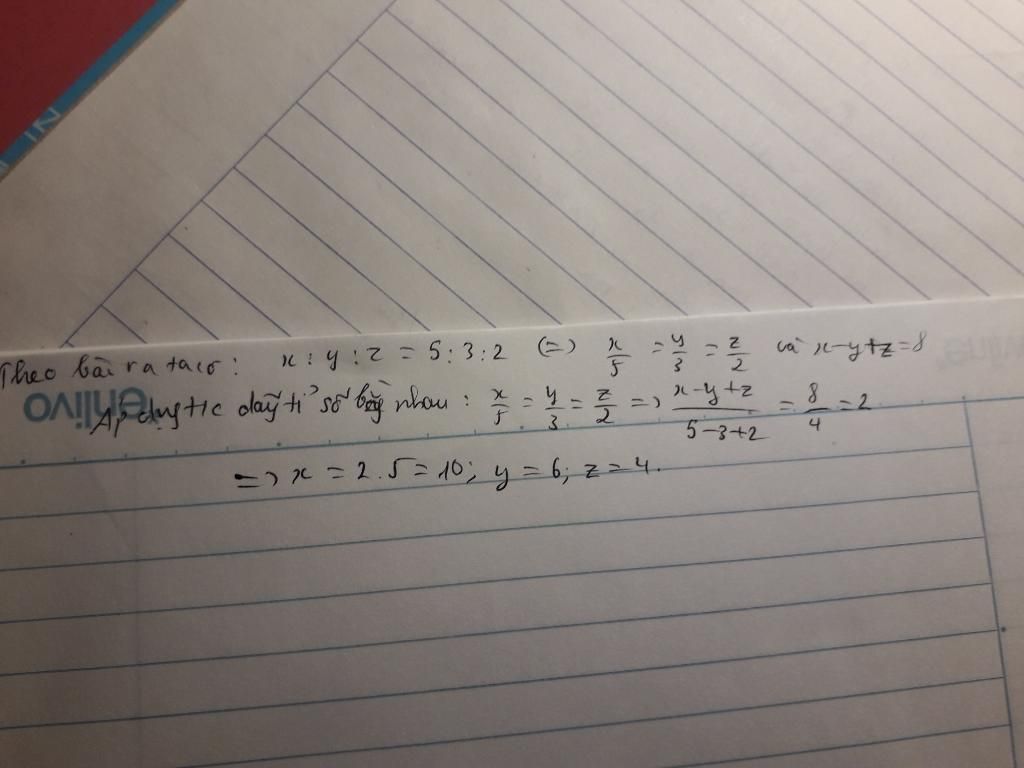 Theo bài ra ta có : x : y : z = 5 : 3 : 2 (=) x/5 = y/3 = z/2 và x-y+z=8
Áp dụng t/c dãy tỉ số bằng nhau : x/5 = y/3 = z/2 => x-y+z/5-3+2 = 8/4 = 2
=> x = 2.5 = 10; y = 6; z = 4.